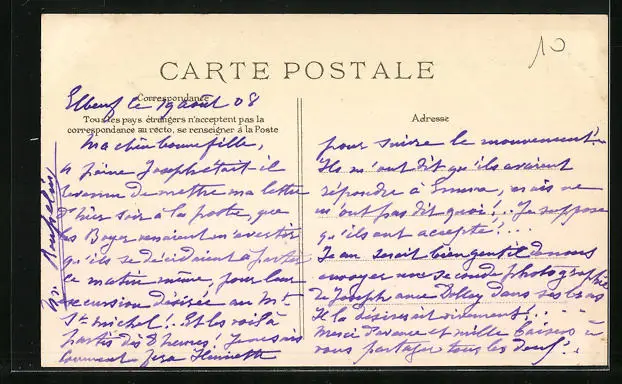 10
CARTE POSTALE
Correspondance
Elbeuf le 19 août 08
Tous les pays étrangers n'acceptent pas la
correspondance au recto, se renseigner à la Poste
Adresse
Ma chère bonne fille,
à peine Joseph était-il
revenu de mettre ma lettre
d'hier soir à la poste, que
les Boyer venaient m'avertir
qu'ils se décidaient à partir
ce matin même pour leur
excursion désirée au Mt
St Michel! Et les voilà
partis dès 8 heures! Je ne sais
comment fera Henriette
pour suivre le mouvement!
Ils m'ont dit qu'ils avaient
répondre à Emma, mais ne
m'ont pas dit quoi! Je suppose
qu'ils ont accepté!...
Jean serait bien gentil de nous
envoyer une seconde photographie
de Joseph avec Dolley dans ses bras
Il la désirerait vivement!...
Merci d'avance et mille baisers à
vous partager tous les deux!